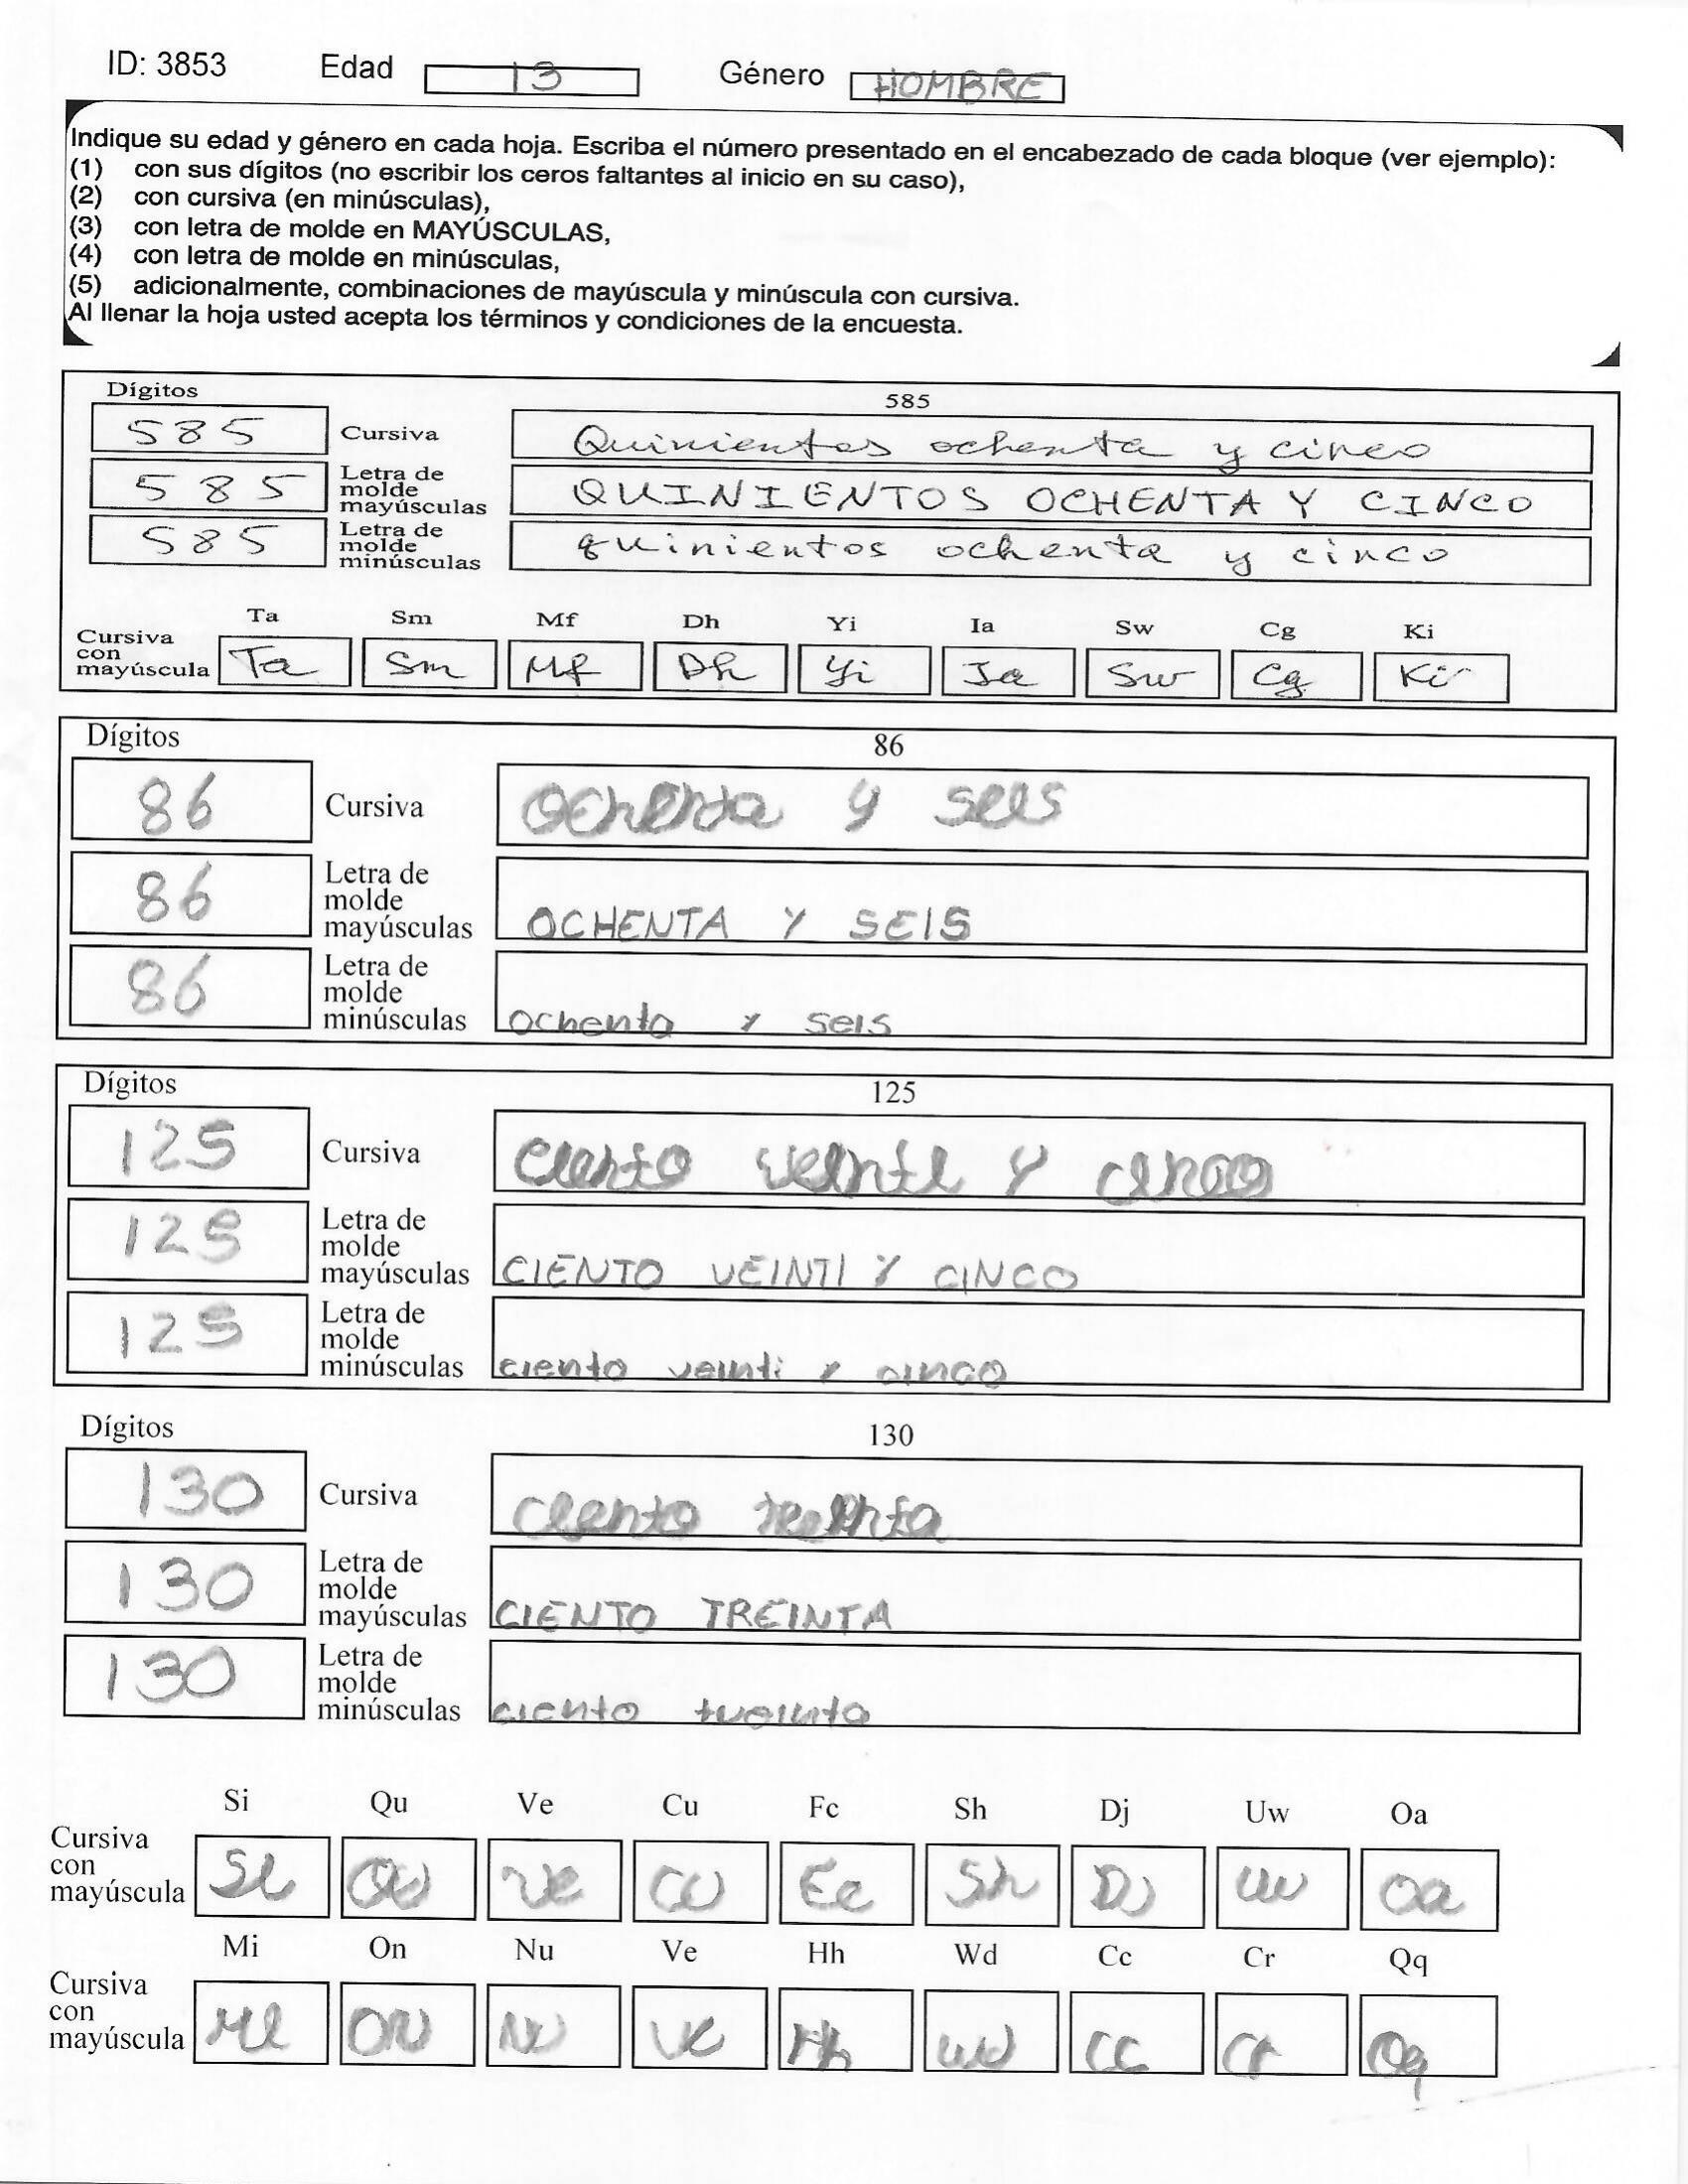 ID: 3853 Edad 13 Género HOMBRE
Indique su edad y género en cada hoja. Escriba el número presentado en el encabezado de cada bloque (ver ejemplo):
(1) con sus dígitos (no escribir los ceros faltantes al inicio en su caso),
(2) con cursiva (en minúsculas),
(3) con letra de molde en MAYÚSCULAS,
(4) con letra de molde en minúsculas,
(5) adicionalmente, combinaciones de mayúscula y minúscula con cursiva.
Al llenar la hoja usted acepta los términos y condiciones de la encuesta.
Dígitos 585
585 Cursiva Quinientos ochenta y cinco
585 Letra de molde mayúsculas QUINIENTOS OCHENTA Y CINCO
585 Letra de molde minúsculas quinientos ochenta y cinco
Ta Sm Mf Dh Yi Ia Sw Cg Ki
Cursiva con mayúscula Ta Sm Mf Dh Yi Ia Sw Cg Ki
Dígitos 86
86 Cursiva ochenta y seis
86 Letra de molde mayúsculas OCHENTA Y SEIS
86 Letra de molde minúsculas ochenta y seis
Dígitos 125
125 Cursiva ciento veinti y cinco
125 Letra de molde mayúsculas CIENTO VEINTI Y CINCO
125 Letra de molde minúsculas ciento veinti y cinco
Dígitos 130
130 Cursiva ciento treinta
130 Letra de molde mayúsculas CIENTO TREINTA
130 Letra de molde minúsculas ciento treinta
Si Qu Ve Cu Fc Sh Dj Uw Oa
Cursiva con mayúscula Si Qu Ve Cu Fc Sh Dj Uw Oa
Mi On Nu Ve Hh Wd Cc Cr Qq
Cursiva con mayúscula Mi On Nu Ve Hh Wd Cc Cr Qq